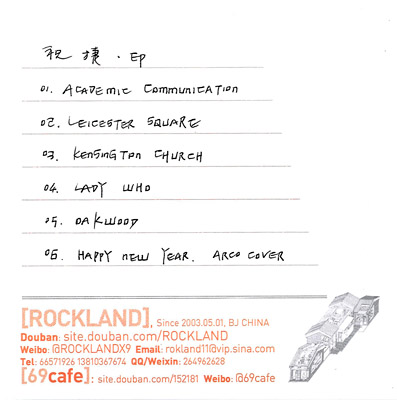 祝 捷 · EP
01. ACADEMIC COMMUNICATION
02. LEICESTER SQUARE
03. KENSINGTON CHURCH
04. LADY WHO
05. OAKWOOD
06. HAPPY NEW YEAR. ARCO COVER
[ROCKLAND], Since 2003.05.01, BJ CHINA
Douban: site.douban.com/ROCKLAND
Weibo: @ROCKLANDX9 Email: rokland11@vip.sina.com
Tel: 66571926 13810367674 QQ/Weixin: 264962628
[69cafe]: site.douban.com/152181 Weibo: @69cafe